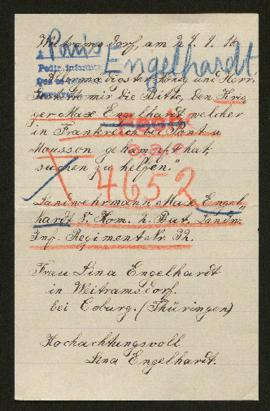 Weitramsdorf, am 27.9.16
Paris
Engelhardt
die Bitte, den Krie
ger Max Engelhardt welcher
in Frankreich bei Pont a
Mousson gekämpft hat,
suchen zu helfen."
4652
Landwehrmann Max Engel
hardt 5. Kom. 2. Bat. Landw.
Ing. Regiment Nr.
Frau Lina Engelhardt
in Weitramsdorf
bei Coburg. (Thüringen)
Hochachtungsvoll
Lina Engelhardt.